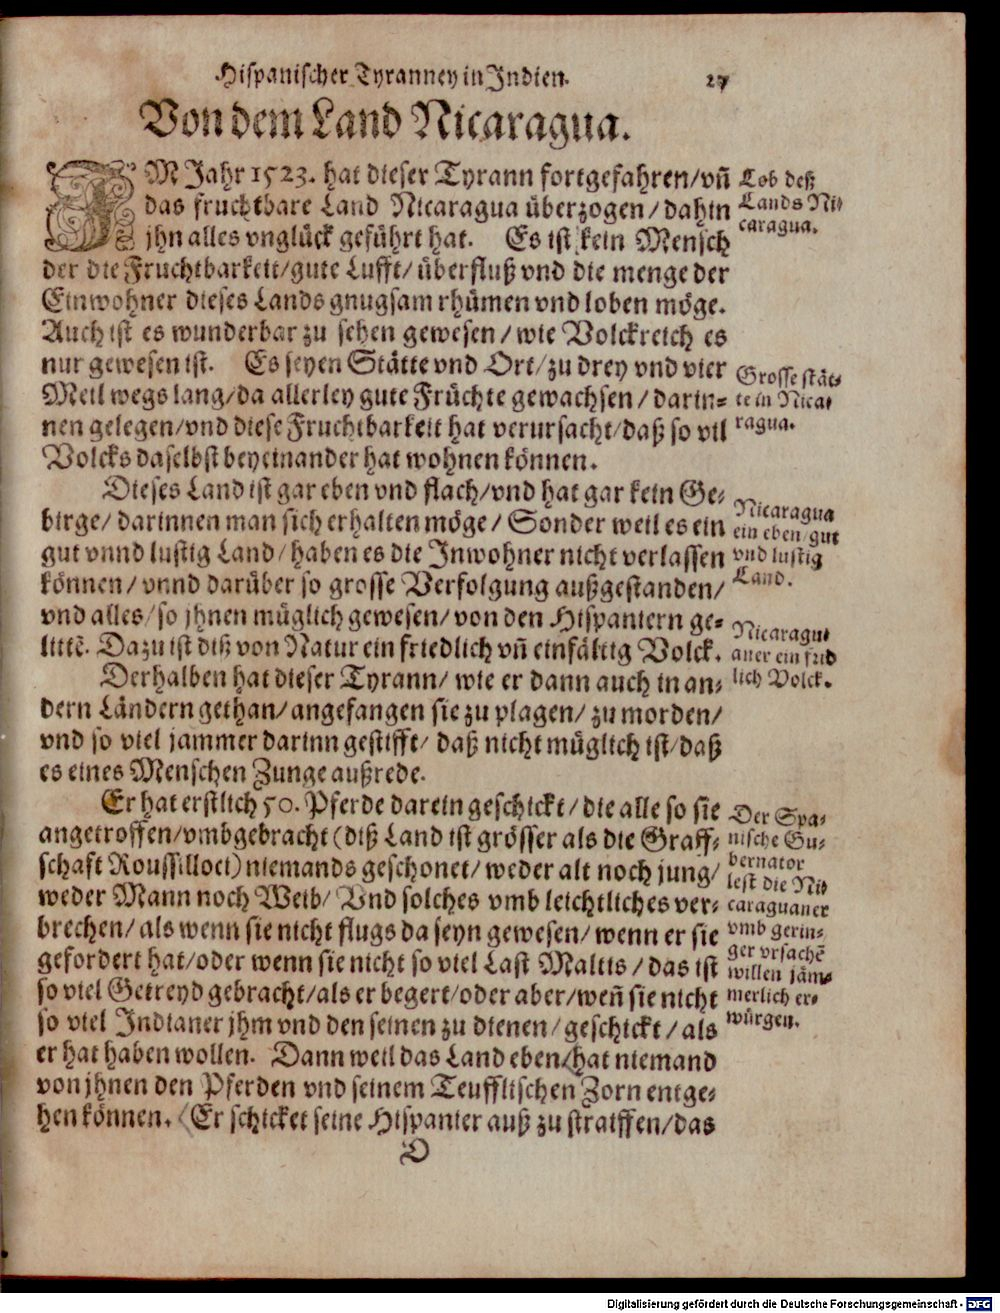 Hiſpaniſcher Tyranney in Indien. 27
Von dem Land Nicaragua.
IM Jahr 1523. hat dieſer Tyrann fortgefahren/vn̄
das fruchtbare Land Nicaragua überzogen/dahin
jhn alles vnglück geführt hat. Es iſt kein Menſch
der die Fruchtbarkeit/gute Lufft/überfluß vnd die menge der
Einwohner dieſes Lands gnugſam rhümen vnd loben möge.
Auch iſt es wunderbar zu ſehen geweſen/wie Volckreich es
nur geweſen iſt. Es ſeyen Stätte vnd Ort/zu drey vnd vier
Meil wegs lang/da allerley gute Früchte gewachſen/darin-
nen gelegen/vnd dieſe Fruchtbarkeit hat verurſacht/daß ſo vil
Volcks daſelbſt beyeinander hat wohnen können.
Dieſes Land iſt gar eben vnd flach/vnd hat gar kein Ge-
birge/darinnen man ſich erhalten möge/Sonder weil es ein
gut vnnd luſtig Land/haben es die Inwohner nicht verlaſſen
können/vnnd darüber ſo groſſe Verfolgung außgeſtanden/
vnd alles/ſo jhnen müglich geweſen/von den Hiſpaniern ge-
littē. Dazu iſt diß von Natur ein friedlich vn̄ einfältig Volck.
Derhalben hat dieſer Tyrann/wie er dann auch in an-
dern Ländern gethan/angefangen ſie zu plagen/zu morden/
vnd ſo viel jammer darinn geſtifft/daß nicht müglich iſt/daß
es eines Menſchen Zunge außrede.
Er hat erſtlich 50. Pferde darein geſchickt/die alle ſo ſie
angetroffen/vmbgebracht (diß Land iſt gröſſer als die Graff-
ſchaft Rouſſilloci) niemands geſchonet/weder alt noch jung/
weder Mann noch Weib/Vnd ſolches vmb leichtliches ver-
brechen/als wenn ſie nicht flugs da ſeyn geweſen/wenn er ſie
gefordert hat/oder wenn ſie nicht ſo viel Laſt Maltis/das iſt
ſo viel Getreyd gebracht/als er begert/oder aber/wen̄ ſie nicht
ſo viel Indianer jhm vnd den ſeinen zu dienen/geſchickt/als
er hat haben wollen. Dann weil das Land eben/hat niemand
von jhnen den Pferden vnd ſeinem Teuffliſchen Zorn entge-
hen können. Er ſchicket ſeine Hiſpanier auß zu ſtraiffen/das
D
Lob deß
Lands Ni-
caragua.
Groſſe ſtät-
te in Nica-
ragua.
Nicaragua
ein eben/gut
vnd luſtig
Land.
Nicaragu-
aner ein frid
lich Volck.
Der Spa-
niſche Gu-
bernator
leſt die Ni-
caraguaner
vmb gerin-
ger vrſachē
willen jäm-
merlich er-
würgen.
Digitalisierung gefördert durch die Deutsche Forschungsgemeinschaft - DFG